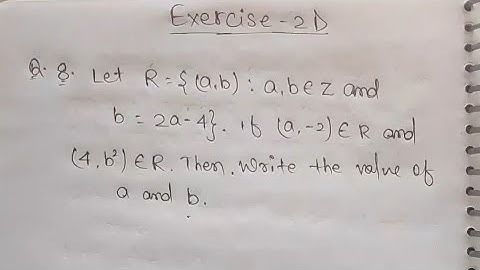 Exercise-2D
Q.8. Let R={(a,b) : a,b∈Z and
b = 2a-4}. If (a,-2)∈R and
(4,b²)∈R. Then. Write the value of
a and b.